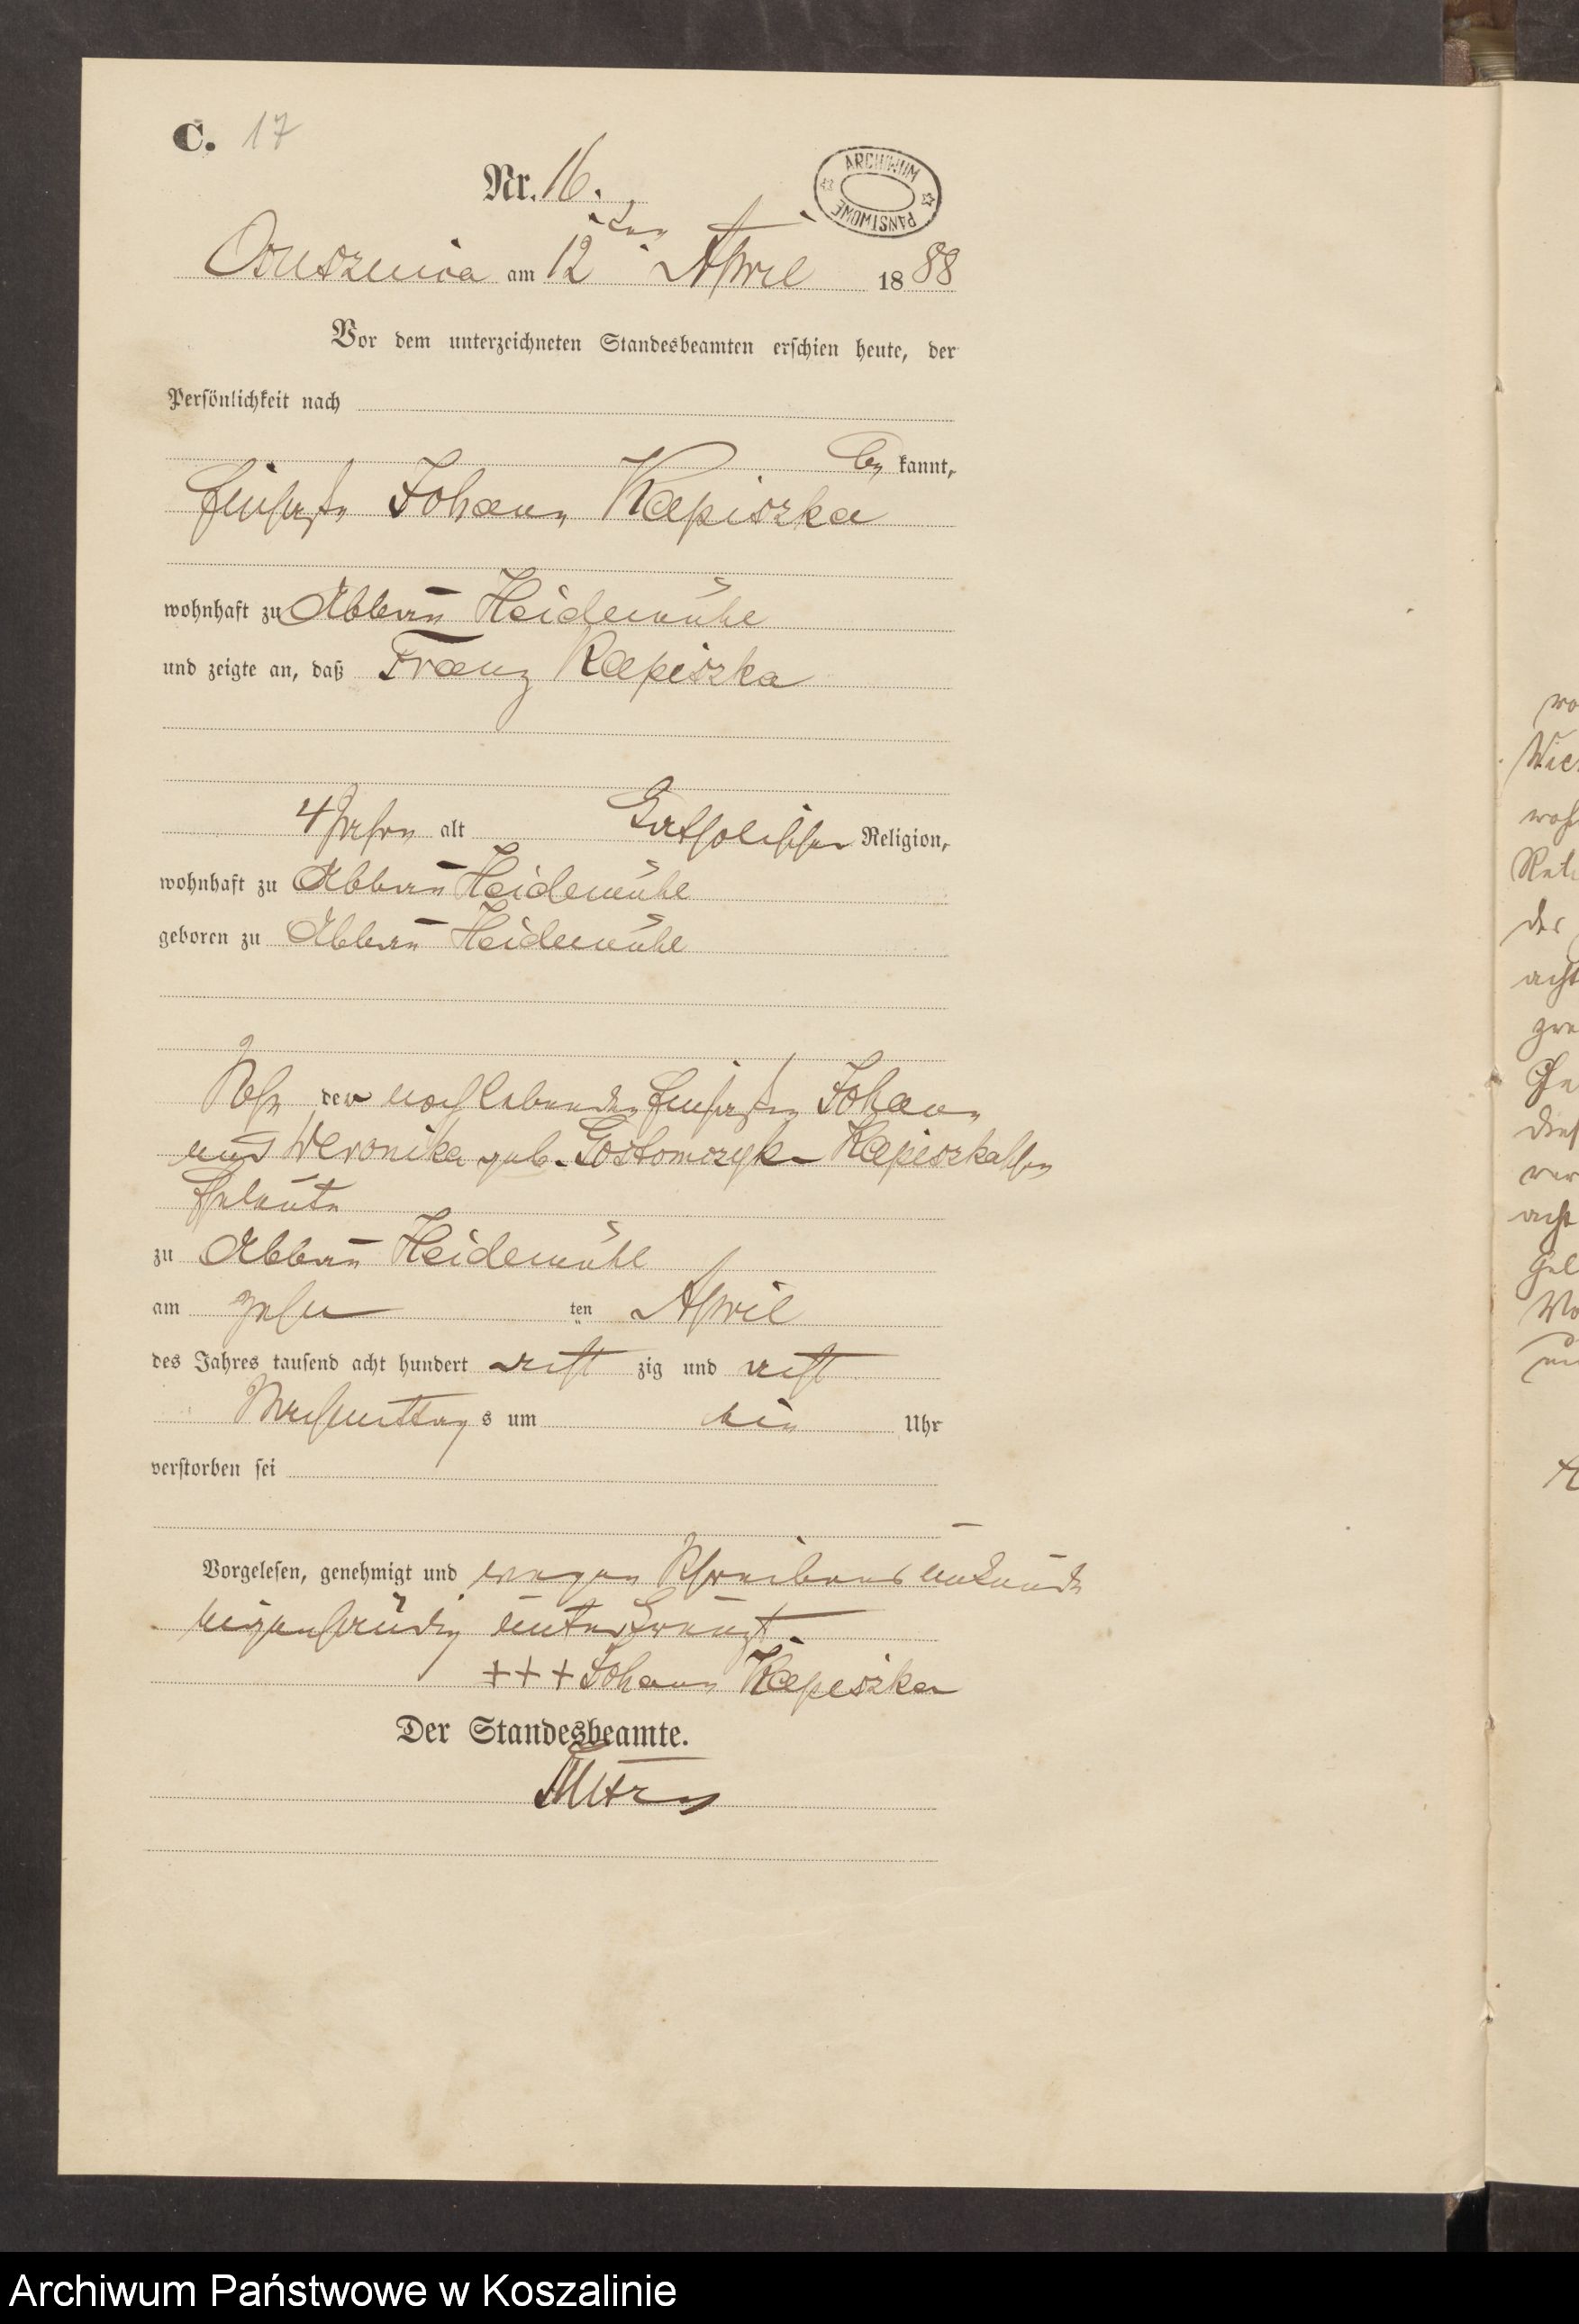 C. 17
Nr. 16.
ARCHIWUM PAŃSTWOWE
Osusznica am 12ten April 1888
Vor dem unterzeichneten Standesbeamten erschien heute, der
Persönlichkeit nach
be kannt,
Johann Kapiszka
wohnhaft zu Abbau Heidemühl
und zeigte an, daß Franz Kapiszka
4 Jahre alt katholischer Religion,
wohnhaft zu Abbau Heidemühl
geboren zu Abbau Heidemühl
Sohn der noch lebenden Johann
und Weronika geb. Gostomczyk Kapiszkaschen
Eheleute
zu Abbau Heidemühl
am zehn ten April
des Jahres tausend acht hundert acht zig und acht
Nachmittags um ein Uhr
verstorben sei
Vorgelesen, genehmigt und wegen Schreibensunkunde
eigenhändig unterkreuzt
+++ Johann Kapiszka
Der Standesbeamte.
wo
Wie
woh
Rat
der
acht
Ge
dies
acht
Archiwum Państwowe w Koszalinie